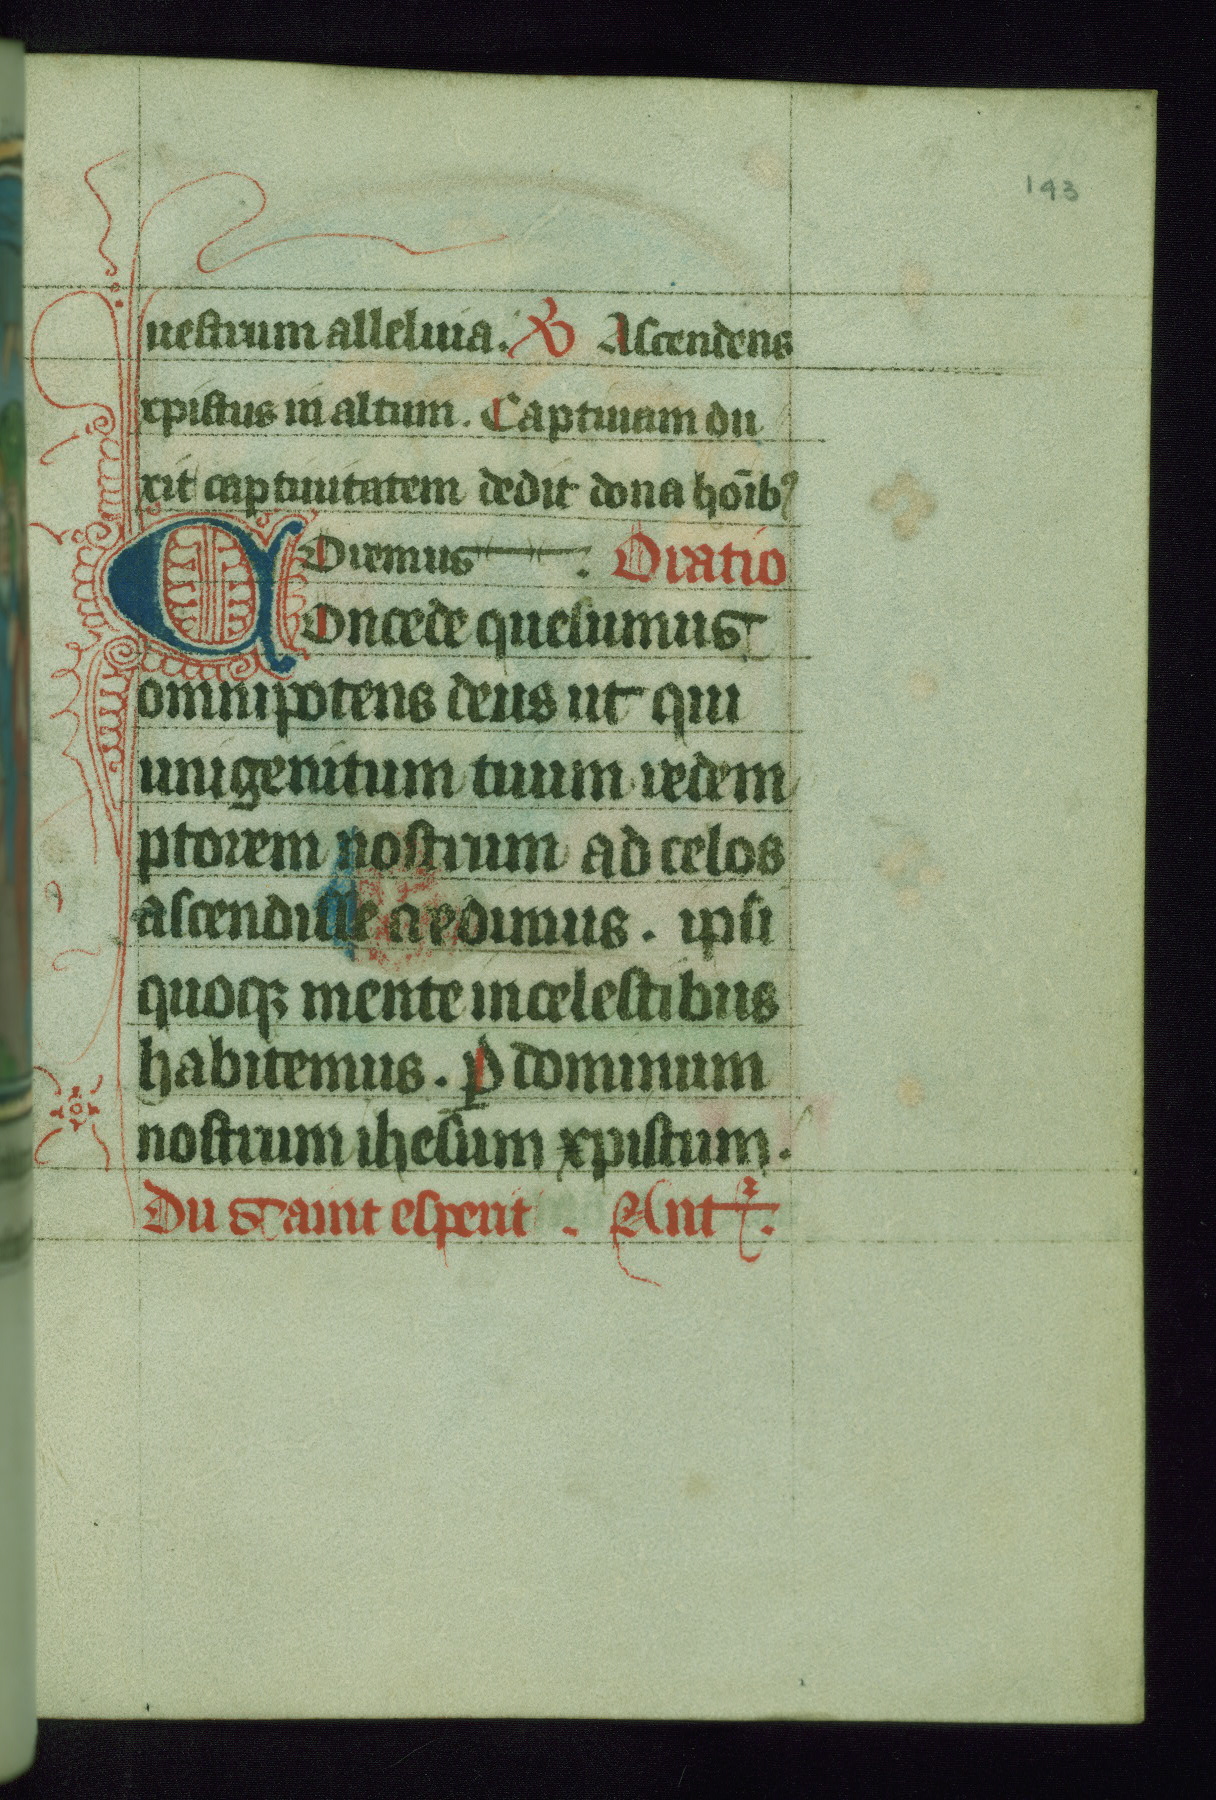 193
uestrum alleluia. ℣ Ascendens
xpistus in altum. Captiuam du
xit captiuitatem dedit dona hoībꝰ
Oremus . Oratio
Concede quesumus
omnipotens deus ut qui
unigenitum tuum redem
ptorem nostrum ad celos
ascendisse credimus . ipsi
quoqꝫ mente in celestibus
habitemus . P dominum
nostrum ihesum xpistum .
Du saint esperit . Ant